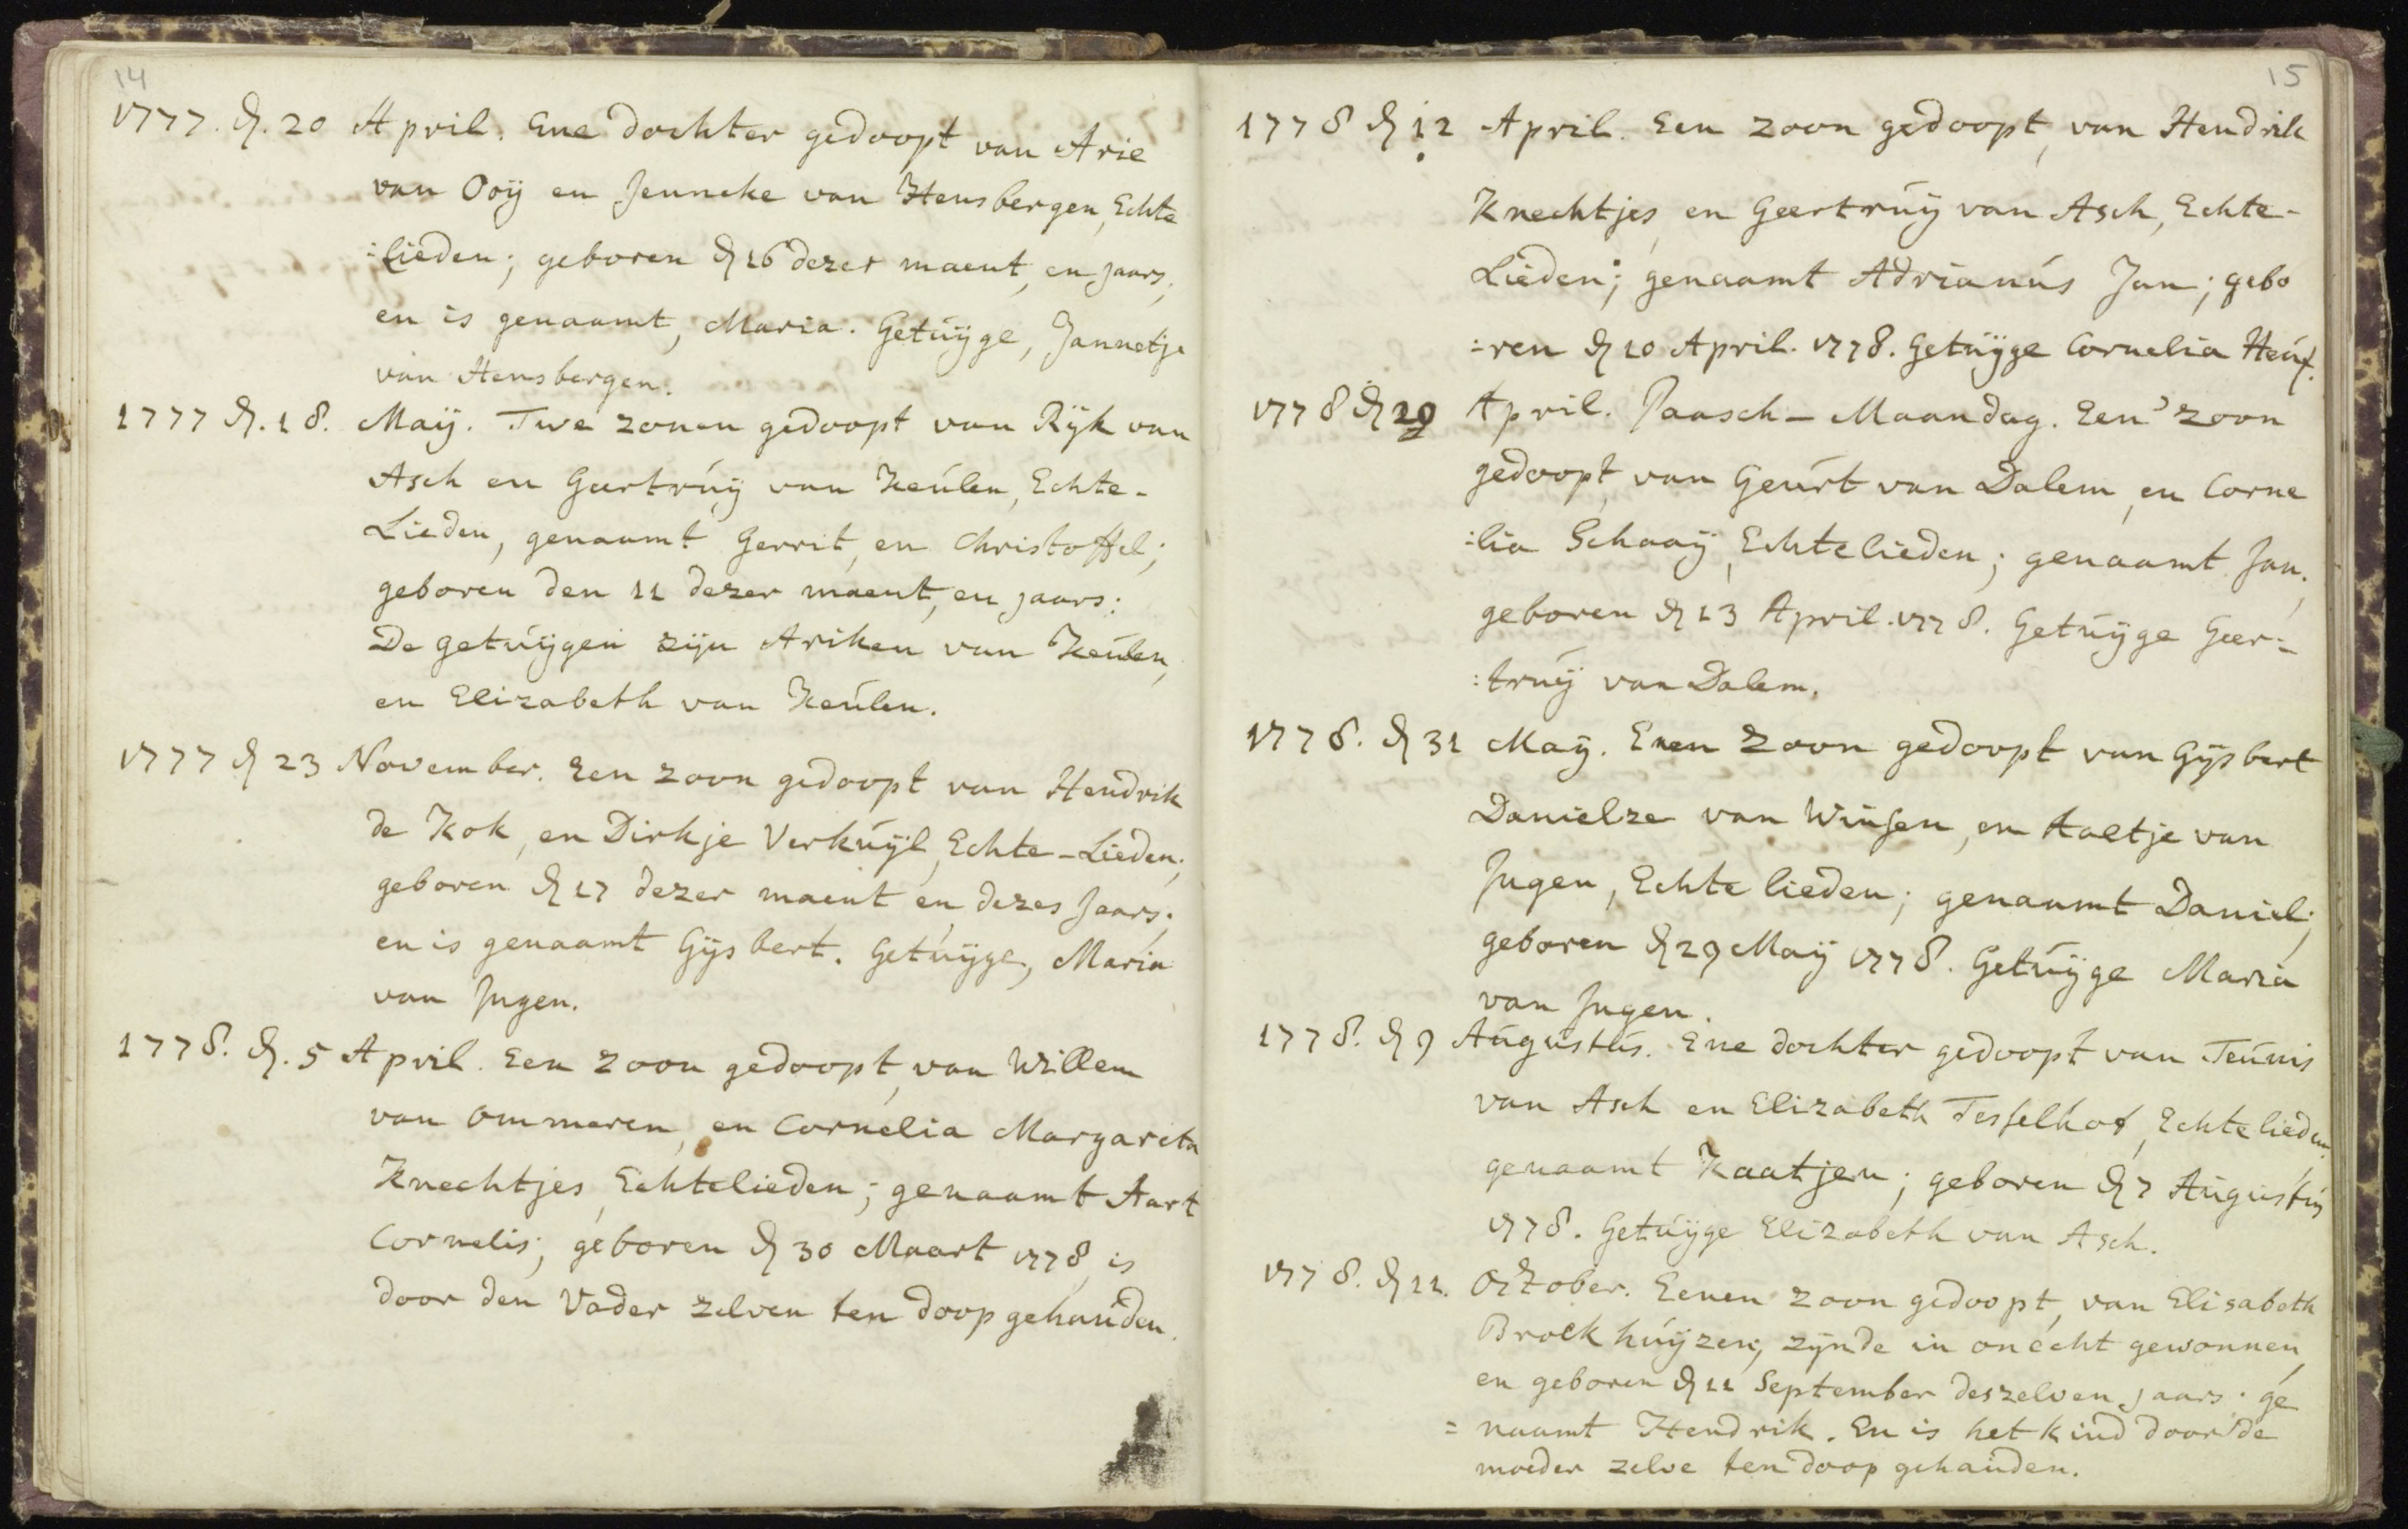 14
1777. dn. 20 April. Ene dochter gedoopt van Arie
van Ooÿ en Jenneke van Hensbergen, Echte
:lieden; geboren dn 16 dezer maent, en jaars;
en is genaamt, Maria. Getúÿge, Jannetje
van Hensbergen.
1777 dn. 18. Maÿ. Twe zonen gedoopt van Rÿk van
Asch en Geertrúÿ van Keúlen, Echte-
Lieden, genaamt Gerrit, en Christoffel;
geboren den 11 dezer maent, en jaars:
De getúÿgen zÿn Ariken van Keúlen,
en Elizabeth van Keúlen.
1777 dn 23 November. Een zoon gedoopt van Hendrik
de Kok, en Dirkje Verkúÿl, Echte-Lieden;
geboren dn 17 dezer maent en dezes Jaars;
en is genaamt Gÿsbert. Getúÿge, Maria
van Ingen.
1778. dn. 5 April. Een zoon gedoopt, van Willem
van Ommeren, en Cornelia Margareta
Knechtjes, Echtelieden; genaamt Aart
Cornelis; geboren dn 30 Maart 1778, is
door den Vader zelven ten doop gehoúden.
15
1778 dn 12 April. Een zoon gedoopt, van Hendrik
Knechtjes, en Geertrúÿ van Asch, Echte-
Lieden; genaamt Adrianús Jan; gebo
:ren dn 10 April. 1778. Getúÿge Cornelia
1778 dn April. Paasch-Maandag. Een zoon
gedoopt, van Geúrt van Dalem, en Corne
:lia Schaaÿ, Echtelieden; genaamt Jan,
geboren dn 13 April. 1778. Getúÿge Geer-
:trúÿ van Dalem.
1778. dn 31 Maÿ. Enen zoon gedoopt van Gÿsbert
Danielze van Winsen, en Aaltje van
Ingen, Echte lieden; genaamt Daniel;
geboren dn 29 Maÿ 1778. Getúÿge Maria
van Ingen.
1778. dn 9 Aúgústús. Ene dochter gedoopt van Teúnis
van Asch en Elizabeth Tesselhof, Echtelieden
genaamt Kaatjen; geboren dn 7 Aúgústús
1778. Getúÿge Elizabeth van Asch.
1778. dn 11. October. Eenen zoon gedoopt, van Elisabeth
Broekhúÿzen; zÿnde in onecht gewonnen,
en geboren dn 11 September deszelven jaars. ge
= naamt Hendrik. En is het kind door de
moeder zelve ten doop gehoúden.